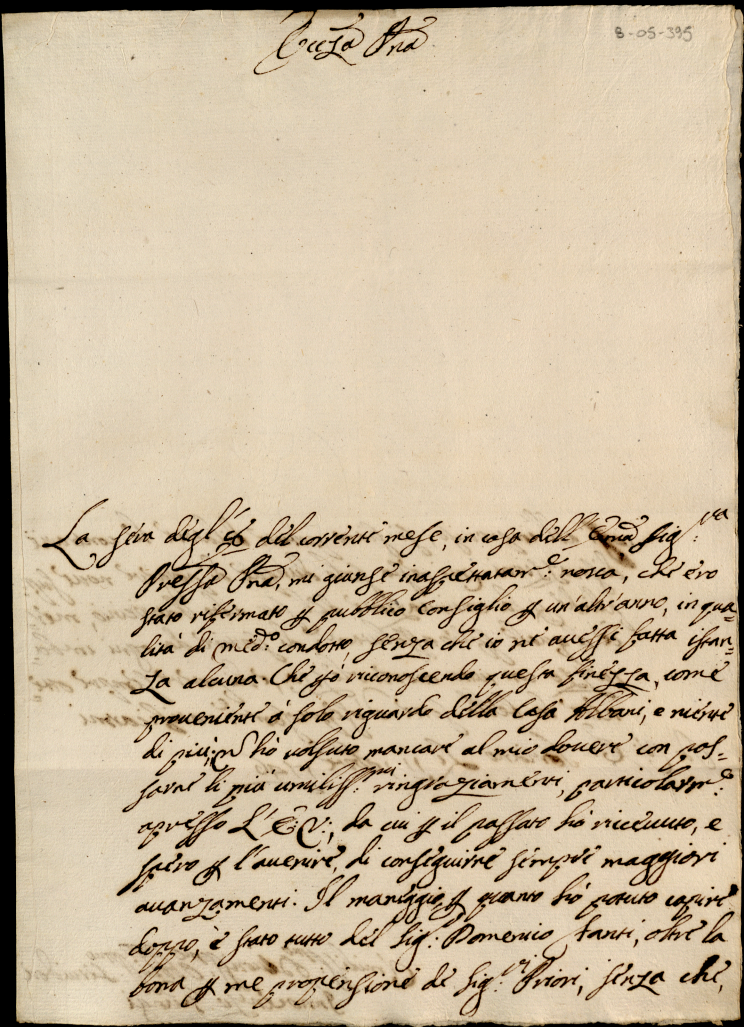 Ecc.za Pna
8-05-395
La sera degl' 8 del corrente mese, in casa dell' Ema Sig:ra
Pressa Pna, mi giunse inaspettatam:e nova, che ero
stato rifermato p publico Consiglio p un'altr'anno, in qua=
lità di med:o condotto, senza che io ne avessi fatta istan=
za alcuna. Che p.ò riconoscendo questa finezza, come
proveniente à solo riguardo della Casa Albani, e niente
di più, n hò volsuto mancare al mio dovere con pas=
sarne li più umiliss:mi ringraziamenti, particolarm:e
apresso L' E: V:, da cui p il passato hò ricevuto, e
spero p l'avenire, di conseguirne sempre maggiori
avanzamenti. Il maneggio, p quanto hò potuto capire
doppo, è stato tutto del Sig: Domenico Fanti, oltre la
bona p me propensione de Sig:ri Priori, senza che,